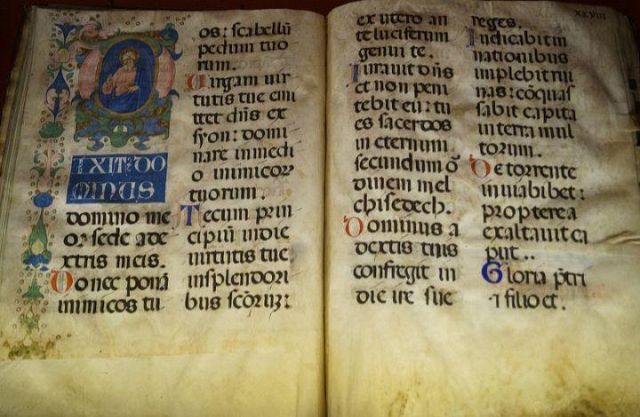 D
IXIT: DO
MINUS
domino me
o: sede a de
xtris meis.
Donec ponā
inimicos tu
os: scabellū
pedum tuo
rum.
Uirgam uir
tutis tue emi
ttet dn̄s ex
syon: domi
nare in medi
o inimicor
tuorum.
Tecum prin
cipiū in die
uirtutis tue
in splendori
bus sc̄orū:
ex utero an
te luciferum
genui te.
Iurauit dn̄s
et non peni
tebit eū: tu
es sacerdos
in eternum
secundum oꝛ
dinem mel
chisedech.
Dominus a
dextis tuis
confregit in
die ire sue
reges.
Iudicabit in
nationibus
implebit rui
nas: cōquas
sabit capita
in terra mul
torum.
De torrente
in uia bibet:
propterea
exaltauit ca
put.
Gloria pr̄i
⁊ filio et.